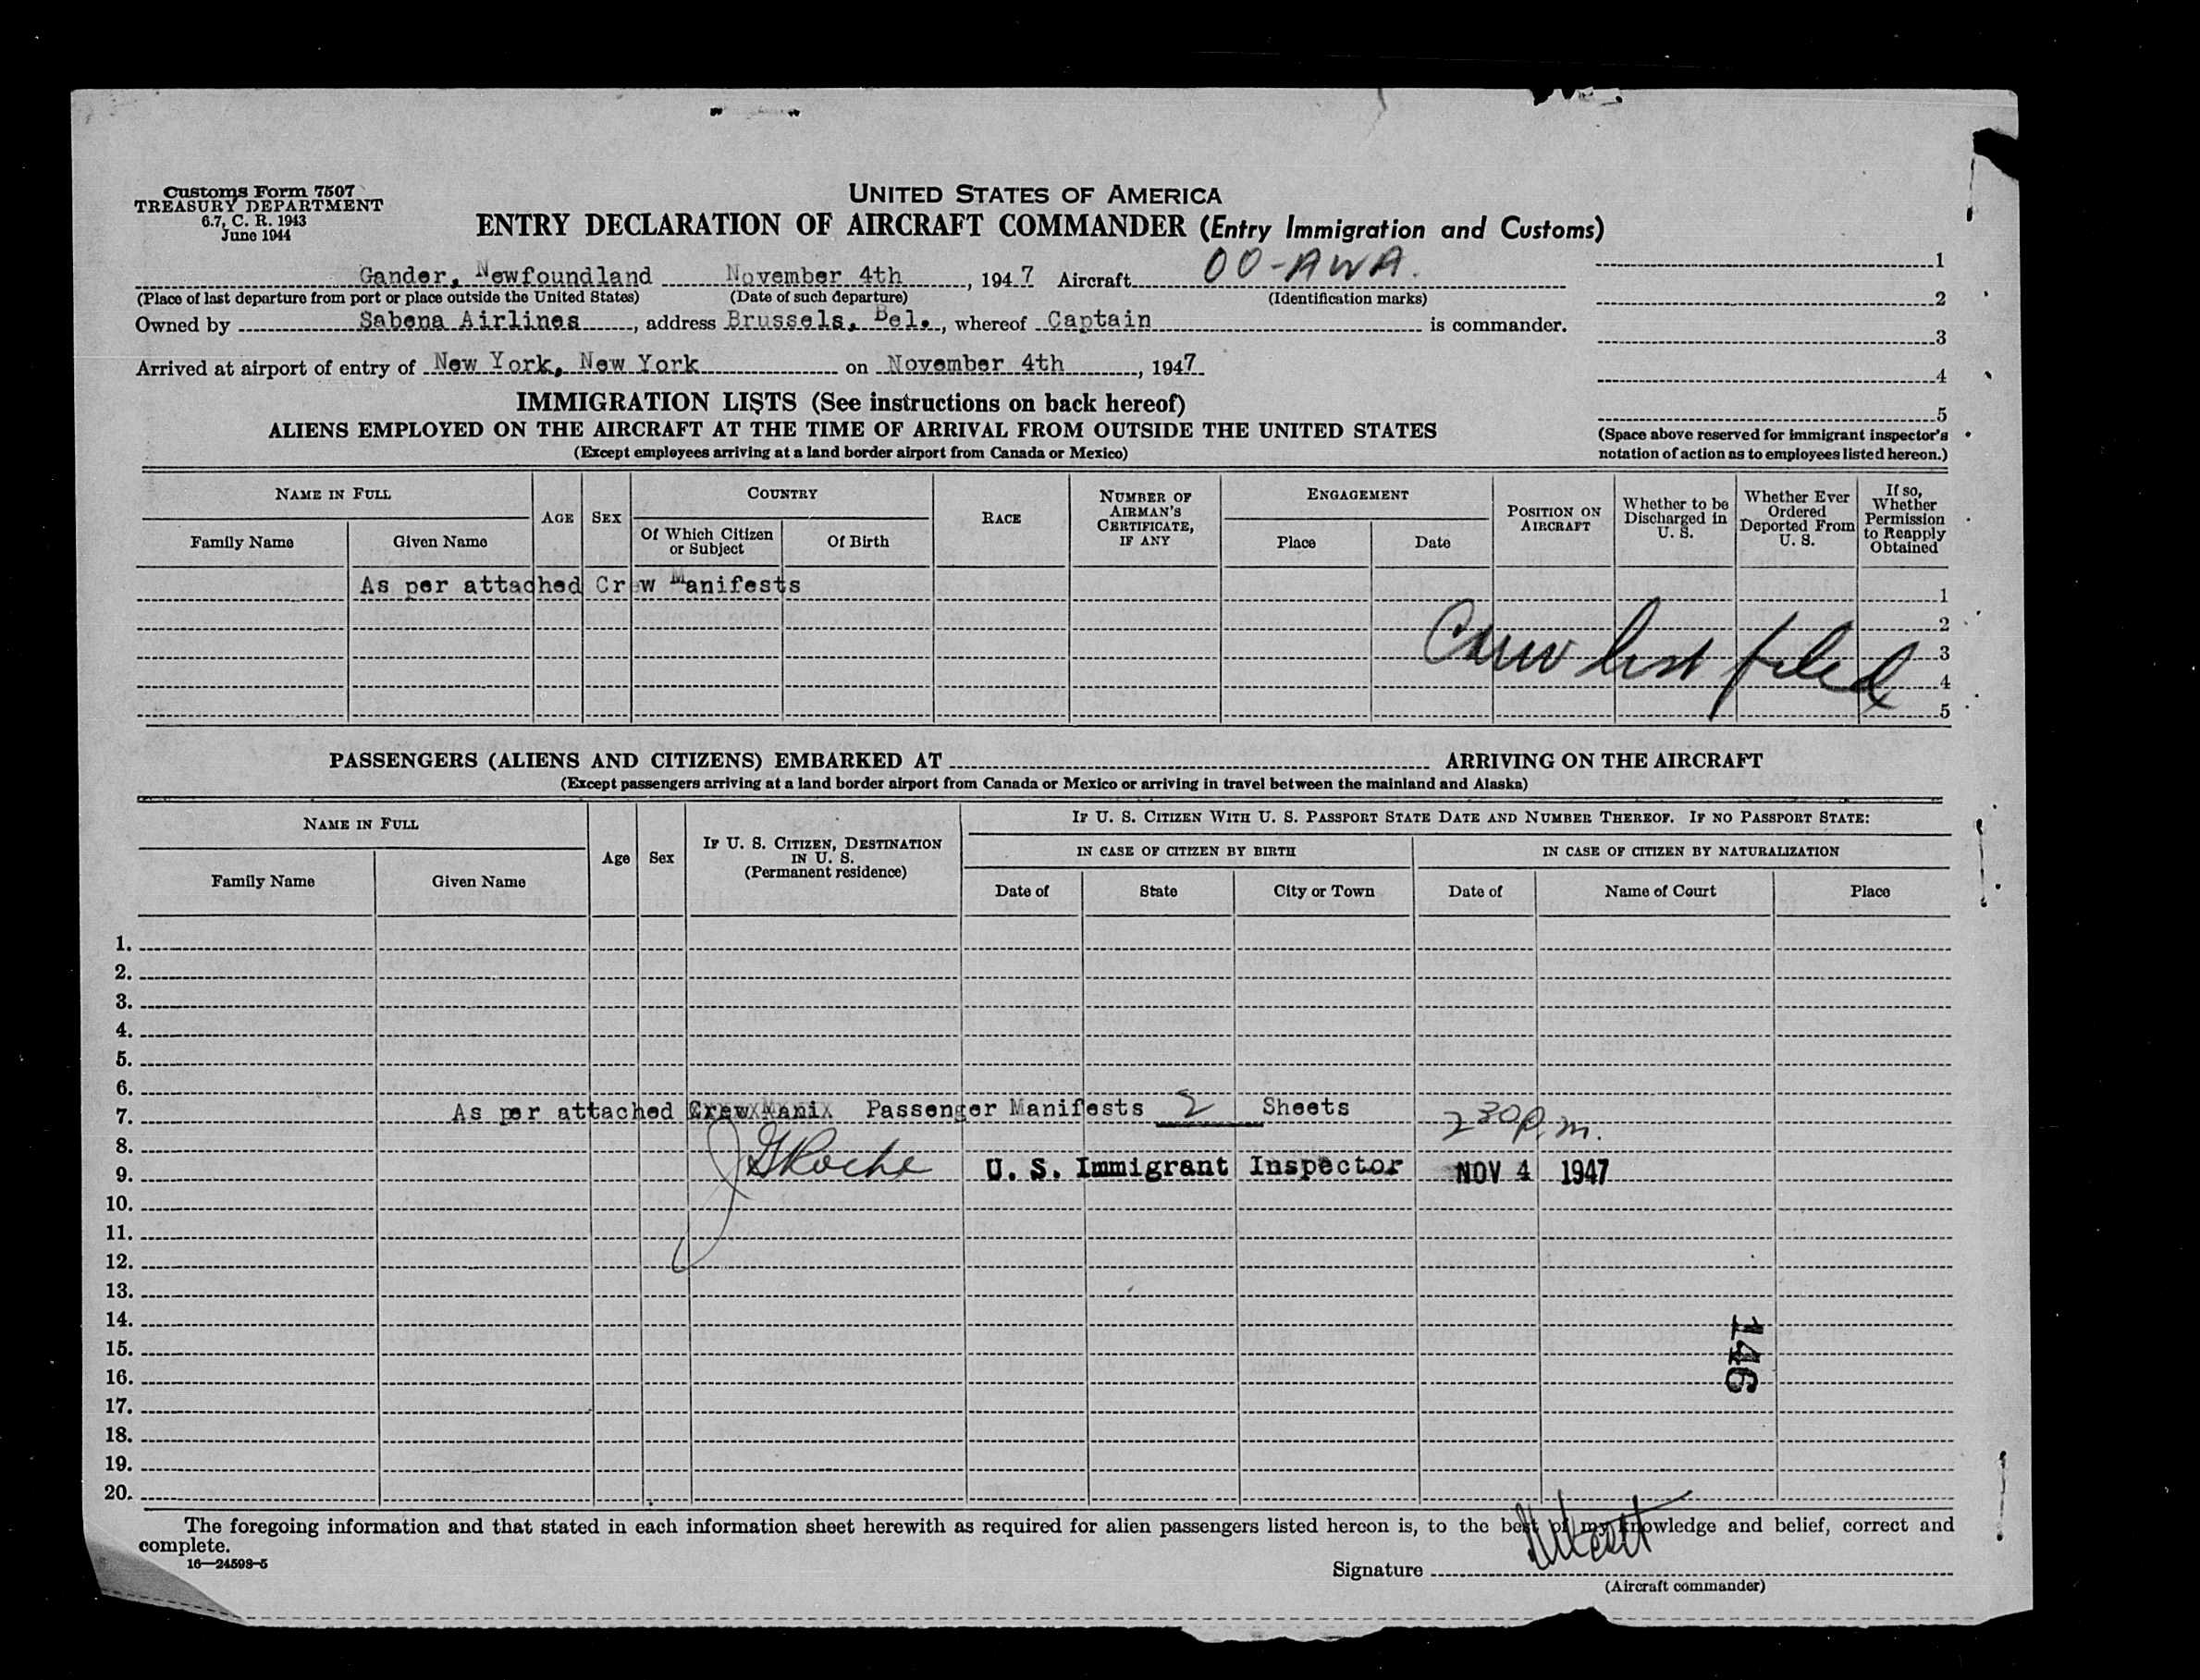 Customs Form 7507
TREASURY DEPARTMENT
6.7, C. R. 1943
June 1944
UNITED STATES OF AMERICA
ENTRY DECLARATION OF AIRCRAFT COMMANDER (Entry Immigration and Customs)
Gander, Newfoundland November 4th, 1947 Aircraft OO-AWA.
(Place of last departure from port or place outside the United States) (Date of such departure) (Identification marks)
Owned by Sabena Airlines, address Brussels, Bel., whereof Captain is commander.
Arrived at airport of entry of New York, New York on November 4th, 1947
1
2
3
4
5
(Space above reserved for immigrant inspector's
notation of action as to employees listed hereon.)
IMMIGRATION LISTS (See instructions on back hereof)
ALIENS EMPLOYED ON THE AIRCRAFT AT THE TIME OF ARRIVAL FROM OUTSIDE THE UNITED STATES
(Except employees arriving at a land border airport from Canada or Mexico)
NAME IN FULL
Family Name
Given Name
AGE
SEX
COUNTRY
Of Which Citizen or Subject
Of Birth
RACE
NUMBER OF AIRMAN'S CERTIFICATE, IF ANY
ENGAGEMENT
Place
Date
POSITION ON AIRCRAFT
Whether to be Discharged in U. S.
Whether Ever Ordered Deported From U. S.
If so, Whether Permission to Reapply Obtained
As per attached Crew Manifests 1
2
Crew list filed 3
4
5
PASSENGERS (ALIENS AND CITIZENS) EMBARKED AT ARRIVING ON THE AIRCRAFT
(Except passengers arriving at a land border airport from Canada or Mexico or arriving in travel between the mainland and Alaska)
NAME IN FULL
Family Name
Given Name
Age
Sex
IF U. S. CITIZEN, DESTINATION IN U. S. (Permanent residence)
IF U. S. CITIZEN WITH U. S. PASSPORT STATE DATE AND NUMBER THEREOF. IF NO PASSPORT STATE:
IN CASE OF CITIZEN BY BIRTH
IN CASE OF CITIZEN BY NATURALIZATION
Date of
State
City or Town
Date of
Name of Court
Place
1.
2.
3.
4.
5.
6.
7. As per attached Crew Mani Passenger Manifests 2 Sheets 2 30 p.m.
8.
9. J G Roche U. S. Immigrant Inspector NOV 4 1947
10.
11.
12.
13.
14.
15.
16.
17.
18.
19.
20.
146
The foregoing information and that stated in each information sheet herewith as required for alien passengers listed hereon is, to the best of my knowledge and belief, correct and
complete.
16—24598-5
Signature
(Aircraft commander)